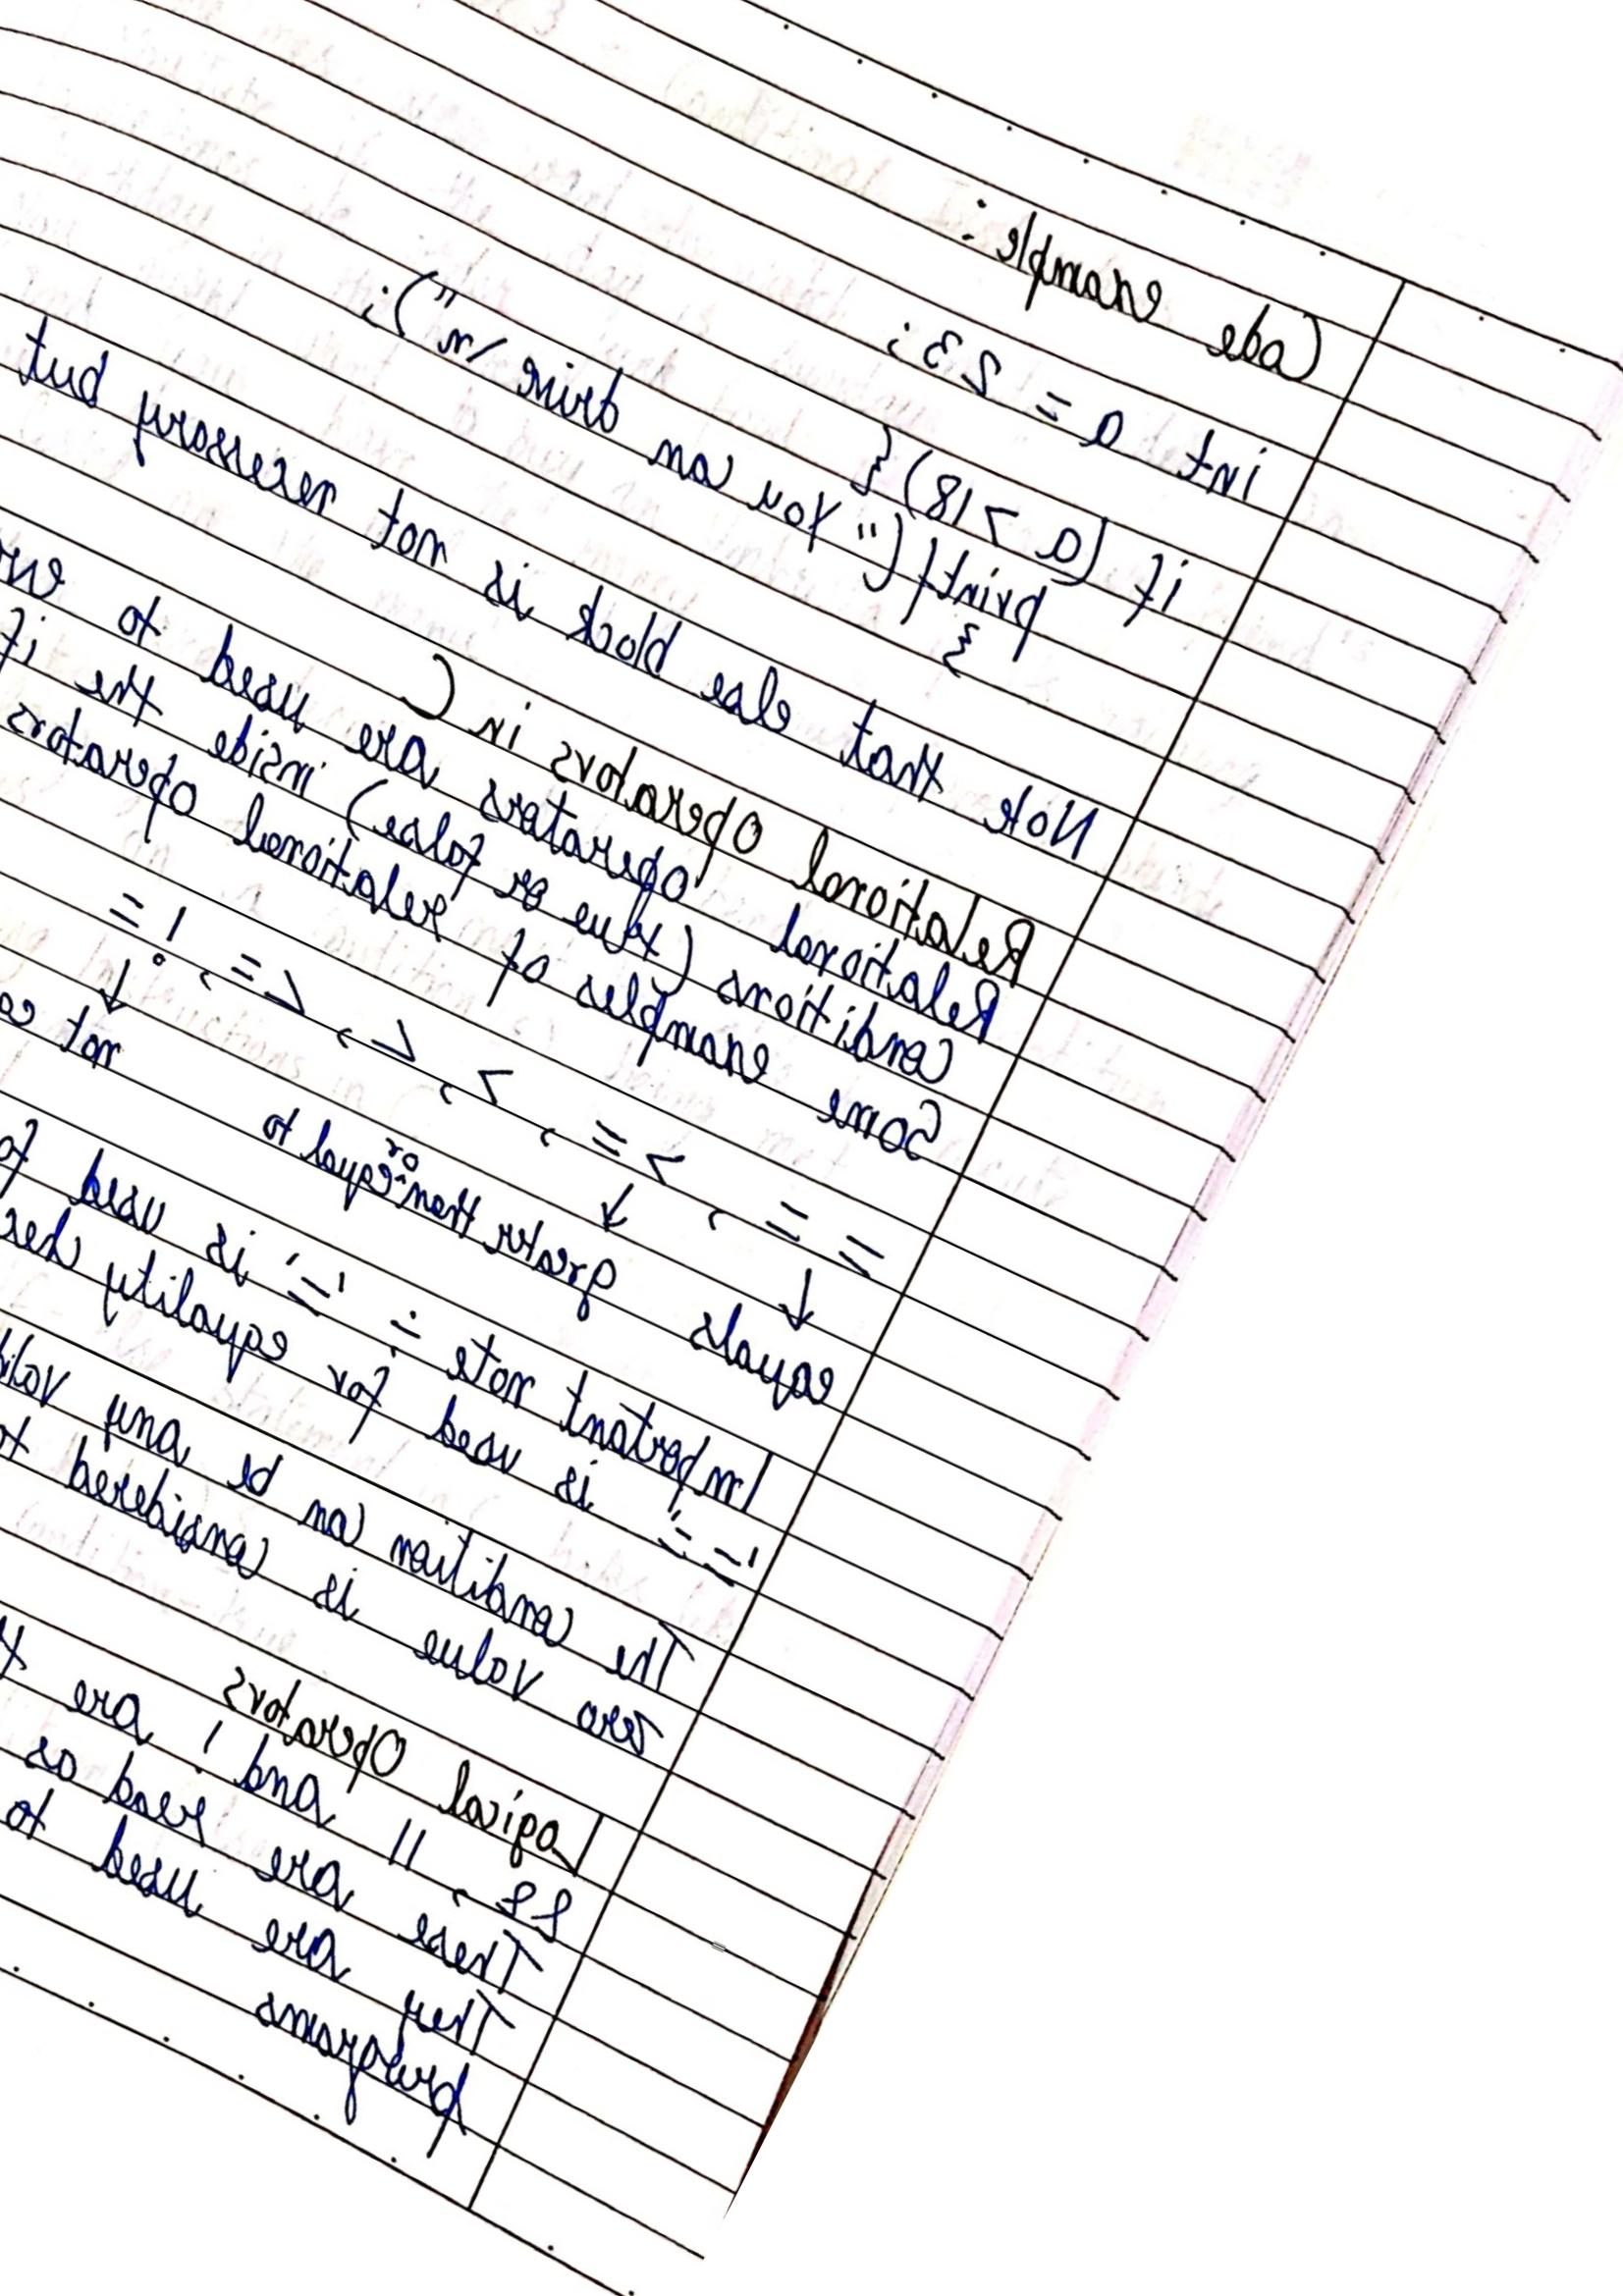 Code example :
int a = 23;
if (a > 18) {
printf ("You can drive \n");
}
Note that else block is not necessary but
Relational Operators in C
Relational operators are used to
conditions (true or false) inside the if
Some examples of relational operators
== , >= , > , < , <= , !=
equals greater than or equal to not
Important note : '=' is used
'==' is used for equality
The condition can be any valid
zero value is considered to
Logical Operators
&& , || and ! are
These are read as
They are used to
programs